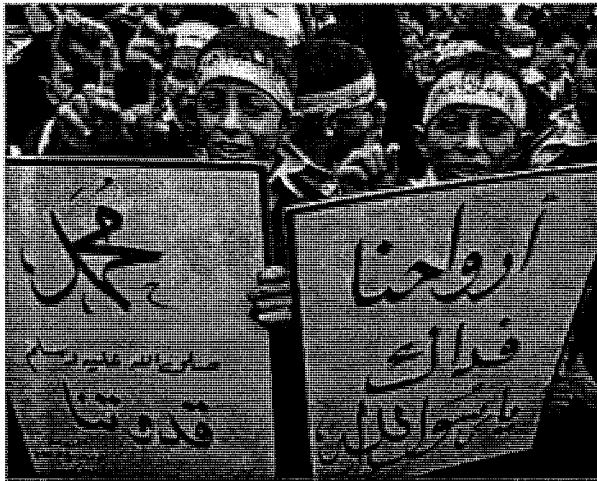 أرواحنا
فداك
يا رسول الله
محمد
صلى الله عليه وسلم
قدوتنا